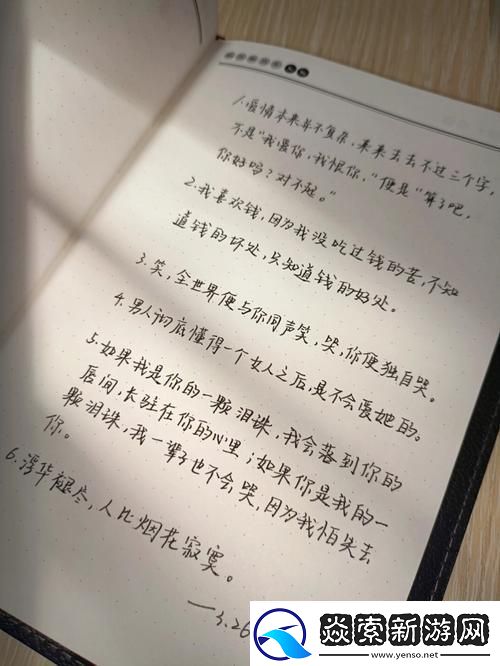 1.爱情本来并不复杂，来来去去不过三个字，
不是“我爱你，我恨你，”便是“算了吧，
你好吗？对不起。”
2.我喜欢钱，因为我没吃过钱的苦，不知
道钱的坏处，只知道钱的好处。
3.笑，全世界便与你同声笑，哭，你便独自哭。
4.男人彻底懂得一个女人之后，是不会爱她的。
5.如果我是你的一颗泪珠，我会落到你的
唇间，长驻在你的心里；如果你是我的一
颗泪珠，我一辈子也不会哭，因为我怕失去
你。
6.浮华褪尽，人比烟花寂寞。
——3.26
焱索新游网
www.yenso.net